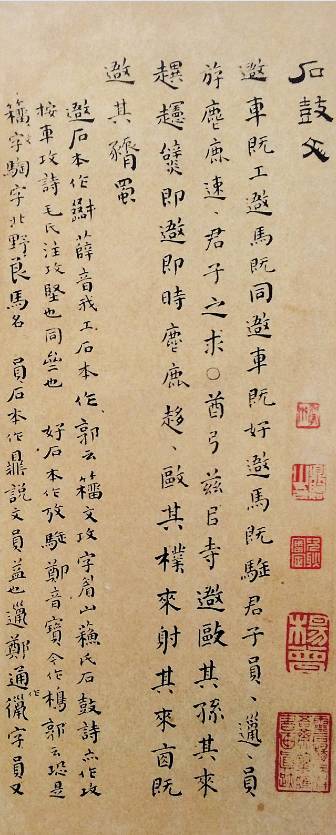 石鼓文
遬車既工遬馬既同遬車既好遬馬既駐君子員〻邋〻員
斿麀鹿速〻君子之求〇酋弓兹㠯寺遬歐其孫其來
趩〻即遬即時麀鹿趍〻歐其樸來射其來
遬其豬蜀
遬石本作 薛音我工石本作 郭云籀文攻字眉山蘇氏石鼓詩亦作攻
按車攻詩毛氏注攻堅也同 也 好石本作 鄭音寶今作 郭云恐是
籀字騊字北野良馬名 員石本作鼎說文員益也邋鄭通作獵字員又